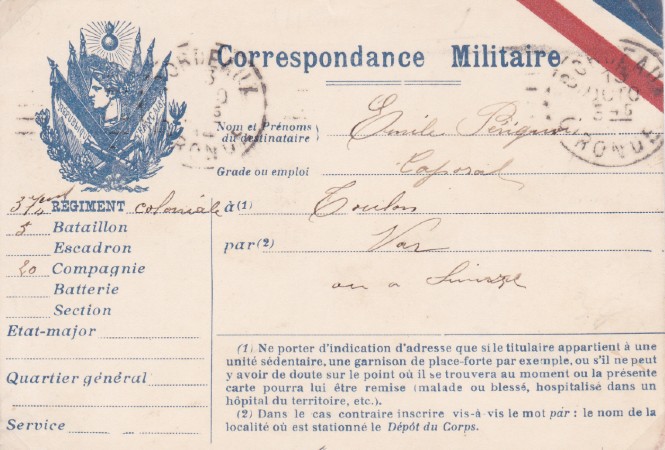 Correspondance Militaire
RÉPUBLIQUE FRANÇAISE
BORDEAUX
GIRONDE
BORDEAUX
GIRONDE
Nom et Prénoms du destinataire Emile
Grade ou emploi Caporal
à (1) Toulon
par (2) Var
ou à
37 RÉGIMENT coloniale
5 Bataillon
Escadron
20 Compagnie
Batterie
Section
Etat-major
Quartier général
Service
(1) Ne porter d'indication d'adresse que si le titulaire appartient à une
unité sédentaire, une garnison de place-forte par exemple, ou s'il ne peut
y avoir de doute sur le point où il se trouvera au moment ou la présente
carte pourra lui être remise (malade ou blessé, hospitalisé dans un
hôpital du territoire, etc.).
(2) Dans le cas contraire inscrire vis-à-vis le mot par : le nom de la
localité où est stationné le Dépôt du Corps.